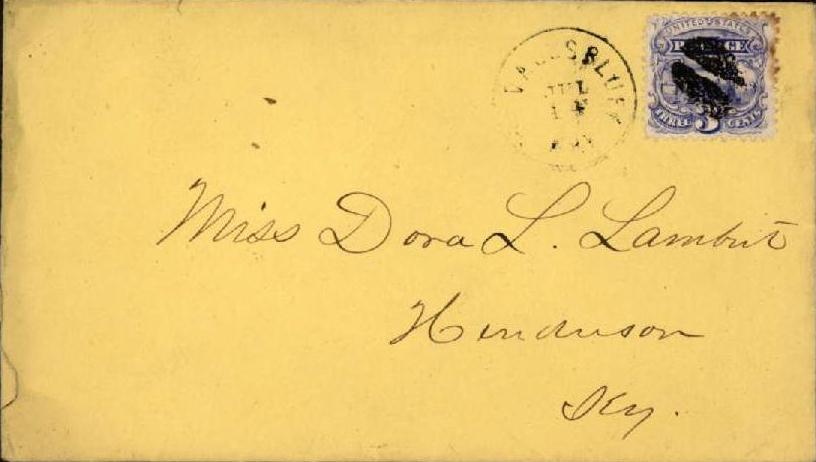 UNITED STATES
POSTAGE
THREE 3 CENTS
BLUFF
JUL
Miss Dora L. Lambert
Henderson
Ky.